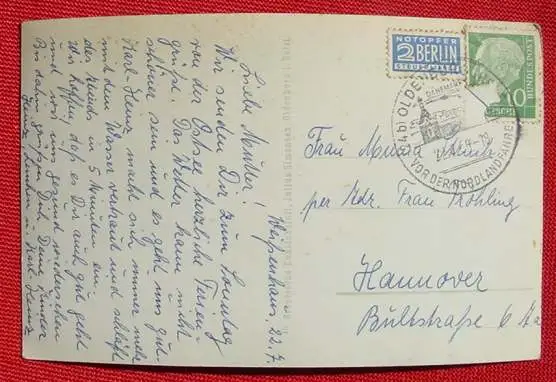 Weißenhaus, 22.7.
Liebe Mutter!
Wir senden Dir zum Sonntag
von der Ostsee herzliche Ferien-
grüße. Das Wetter kann nicht
schöner sein und es geht uns gut.
Karl-Heinz macht sich immer mehr
mit dem Wasser vertraut und schläft
des abends in 5 Minuten ein.
Wir hoffen, daß es Dir auch gut geht
und wir uns gesund wiedersehen
Bis dahin grüßen Dich Deine Kinder
Heinz, und Karl-Heinz
NOTOPFER
2 BERLIN
STEUERMARKE
DEUTSCHE BUNDESPOST
10
OLDENBURG
VOR DER NORDLANDFAHRT
Frau
per Adr. Frau Fröhling
Hannover
Bultstraße 6